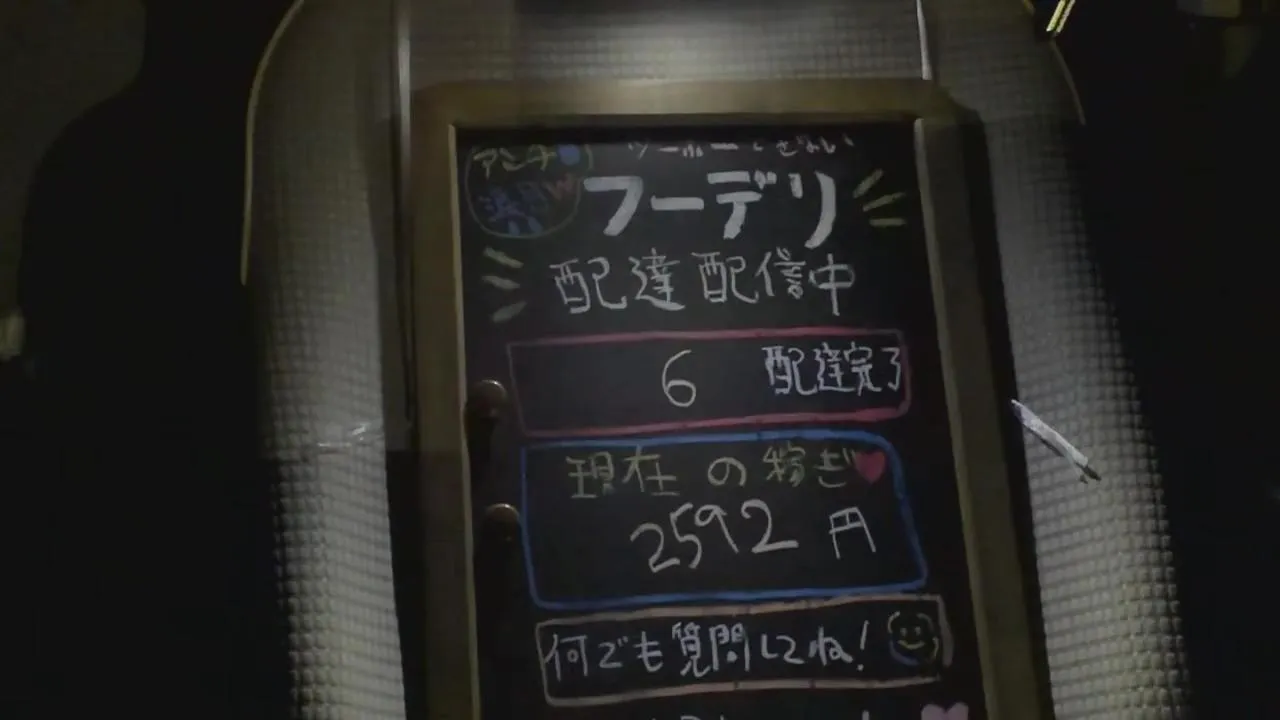 アンチ
フーデリ
配達配信中
6 配達完了
現在の稼ぎ
2592円
何でも質問してね!